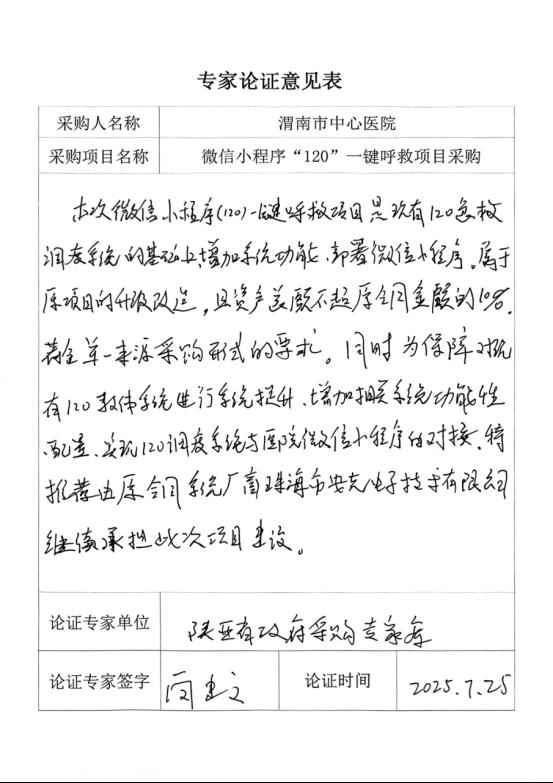 专家论证意见表
采购人名称 渭南市中心医院
采购项目名称 微信小程序“120”一键呼救项目采购
本次微信小程序(120)一键呼救项目是现有120急救
调度系统的基础上增加系统功能、部署微信小程序。属于
原项目的升级改造，且资产总额不超原合同金额的10%.
符合单一来源采购形式的要求。同时为保障对现
有120整体系统进行系统提升、增加相关系统功能性
配置、实现120调度系统与医院微信小程序的对接.特
推荐由原合同系统厂商珠海市安克电子技术有限公司
继续承担此次项目建设。
论证专家单位 陕西省政府采购专家库
论证专家签字
论证时间 2025.7.25